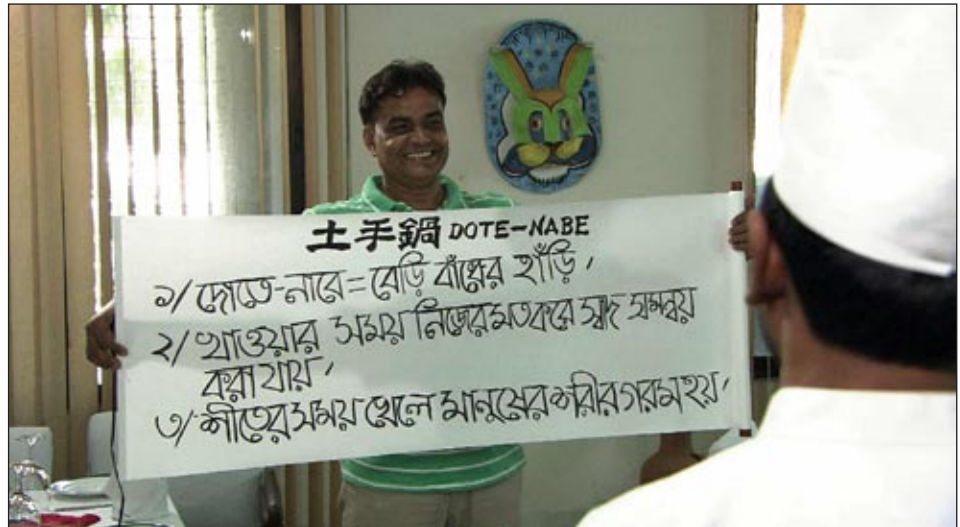 土手鍋 DOTE-NABE
১/ দোতে-নাবে = বেড়ি বাঁধের হাঁড়ি,
২/ খাওয়ার সময় নিজের মত করে স্বাদ সমন্বয়
করা যায়,
৩/ শীতের সময় খেলে মানুষের শরীর গরম হয়,